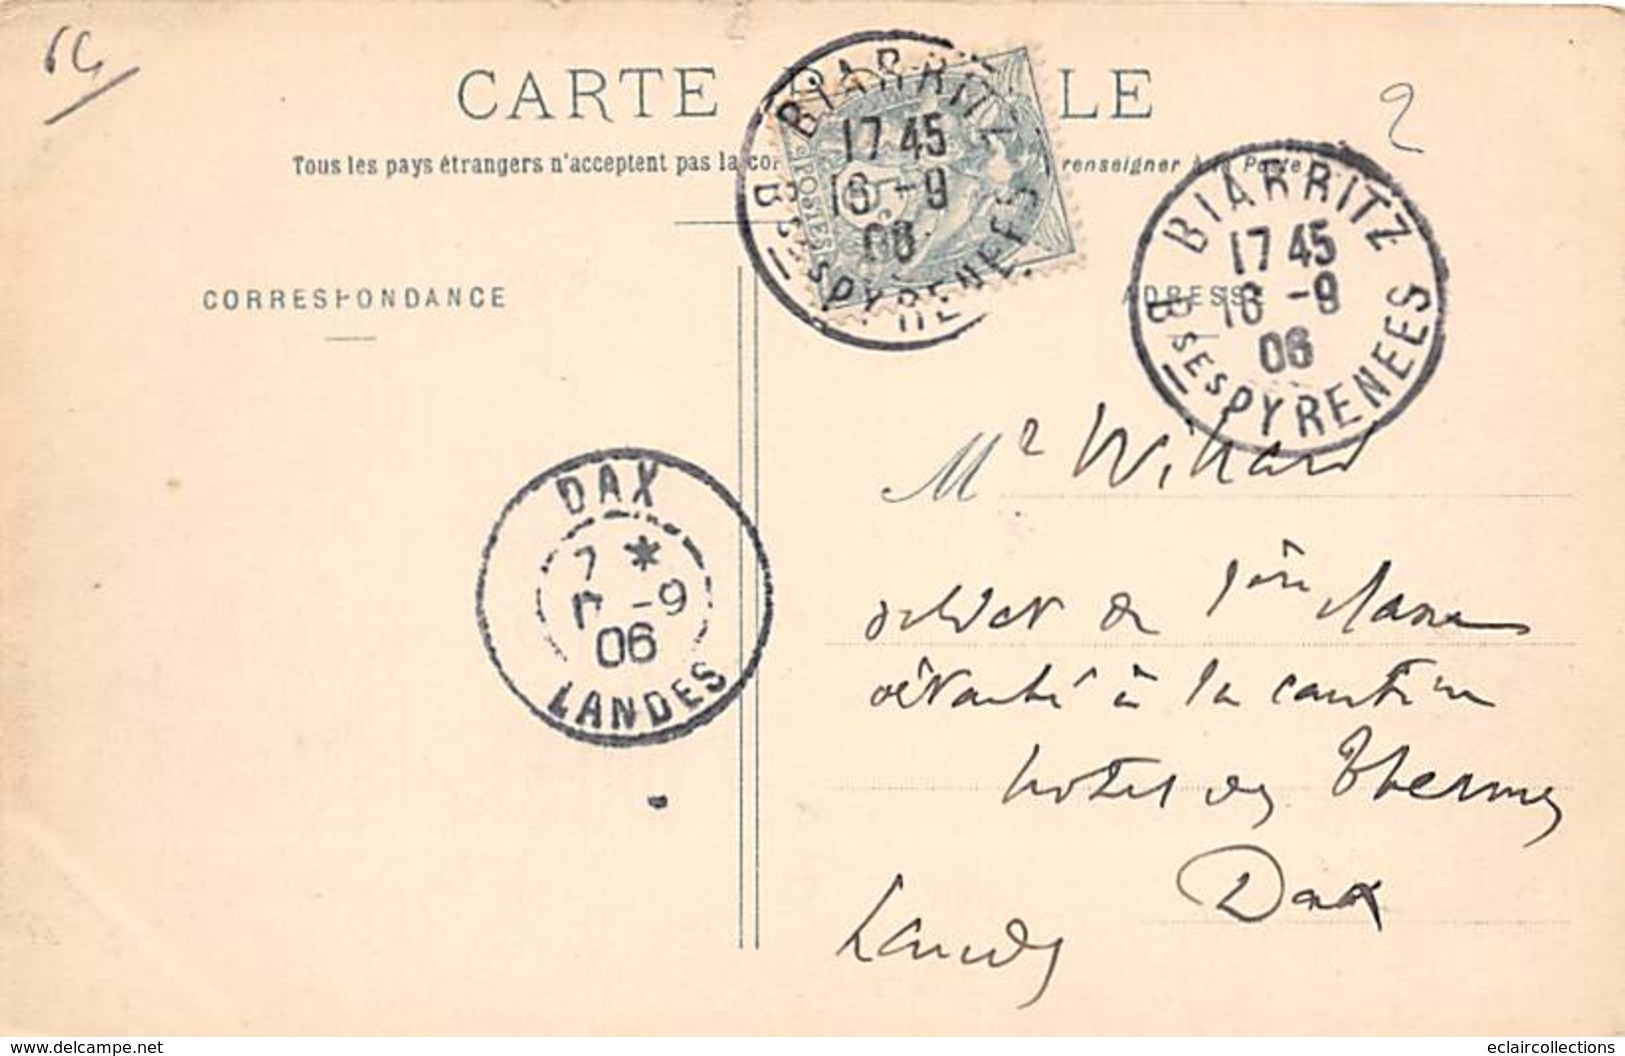 64
2
CARTE P LE
Tous les pays étrangers n'acceptent pas la cor renseigner à la Poste
CORRESPONDANCE
ADRESSE
POSTES
BIARRITZ
17 45
16 -9
06
Bses PYRENEES
BIARRITZ
17 45
16 -9
06
Bses PYRENEES
DAX
7 *
17 -9
06
LANDES
Mr
soldat de 1ère classe
détaché à la cantine
hotel des Thermes
Dax
Landes
www.delcampe.net
eclaircollections